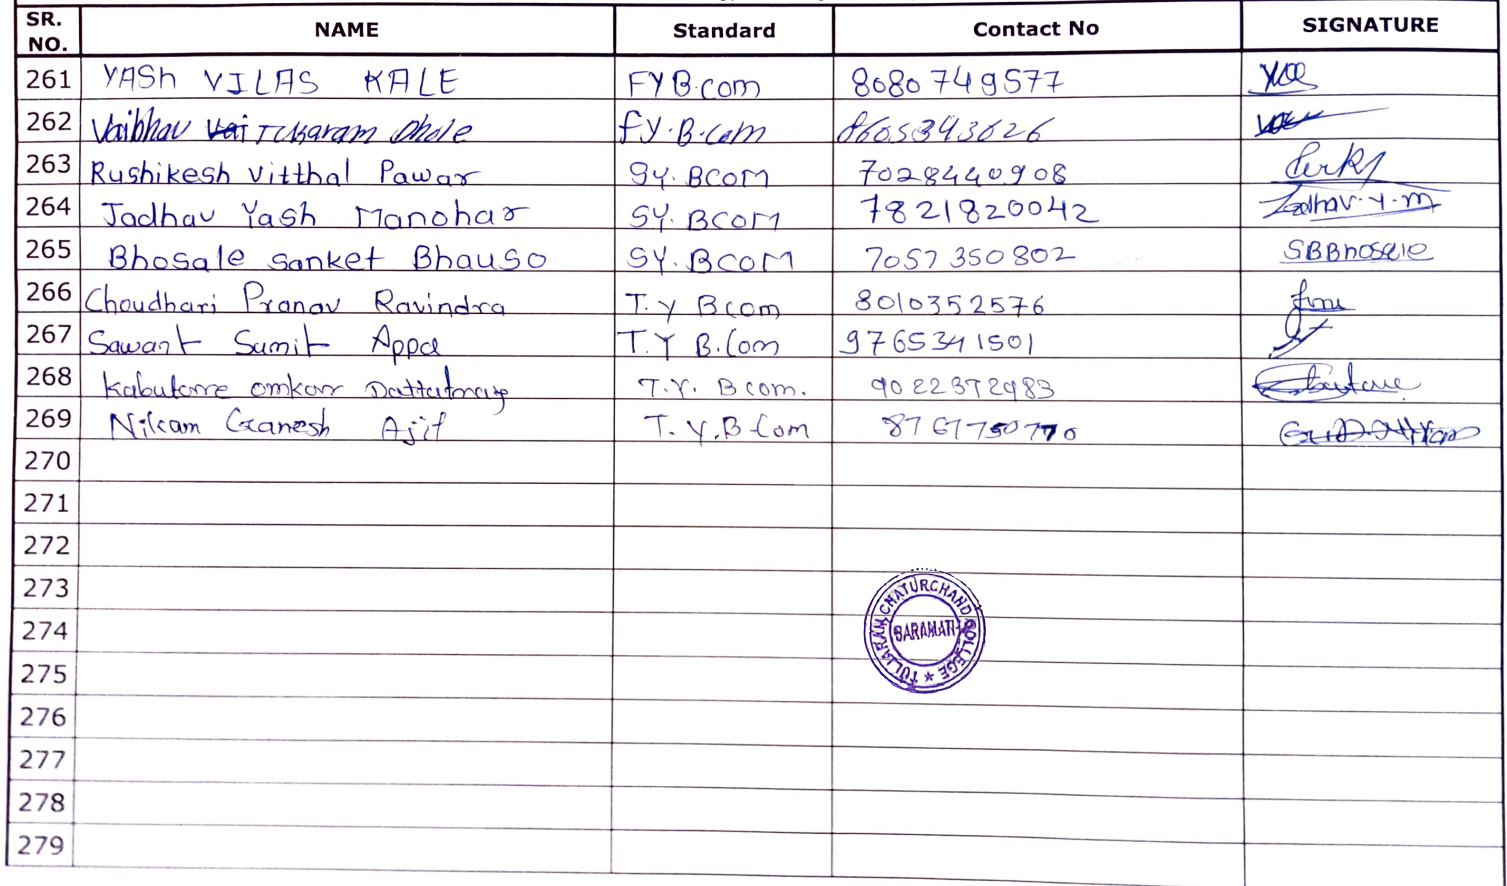 SR. NO. NAME Standard Contact No SIGNATURE
261 YASh VILAS KALE FYB.com 8080749577
262 Vaibhav Tukaram Dhole FY.B.com 8605343626
263 Rushikesh Vitthal Pawar SY. BCOM 7028440908
264 Jadhav Yash Manohar SY. BCOM 7821820042 Jadhav.Y.M
265 Bhosale Sanket Bhauso SY. BCOM 7057350802 SBBhosale
266 Choudhari Pranav Ravindra T.Y Bcom 8010352576
267 Sawant Sumit Appa T.Y B.Com 9765341501
268 Kabutare omkar Dattatray T.Y. Bcom. 9022372983
269 Nikam Ganesh Ajit T.Y.B.Com 8767750770
270
271
272
273
274
275
276
277
278
279
TULJARAM CHATURCHAND COLLEGE
BARAMATI